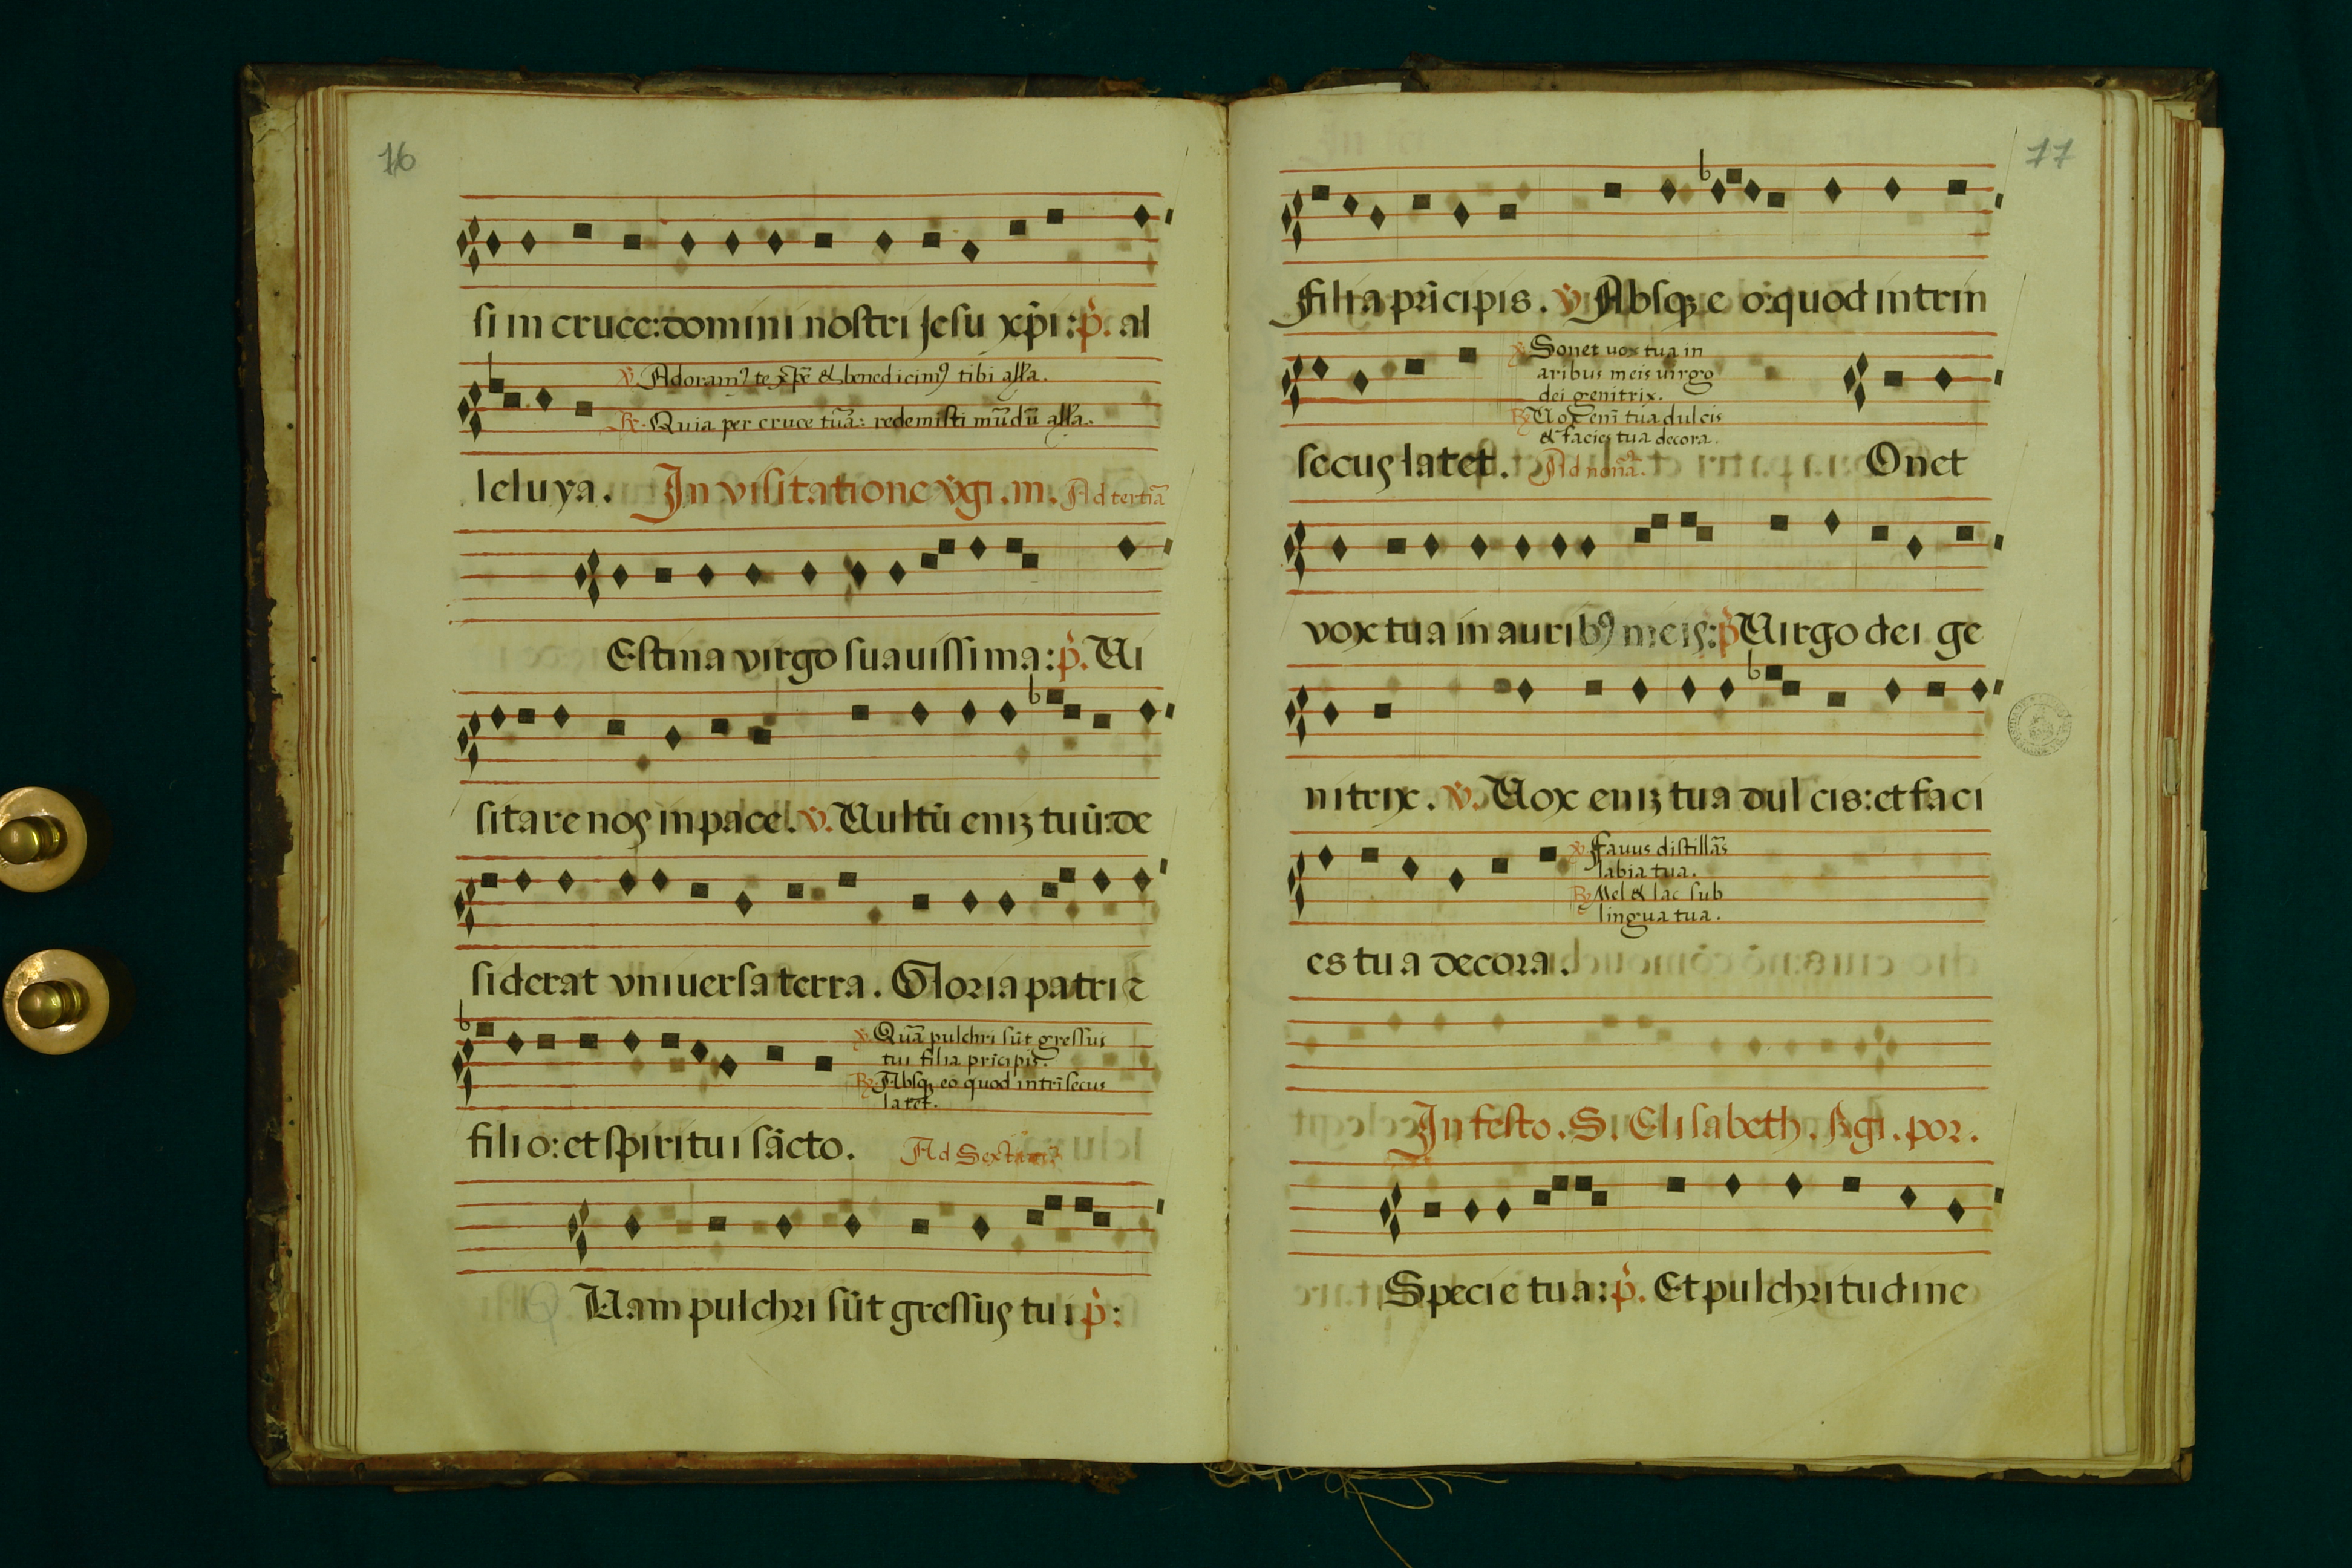 76
si in cruce: domini nostri Jesu xp̃i: p̊. al
℣. Adoramꝰ te xp̃e & benedicimꝰ tibi alľa.
℟. Quia per cruce tuã: redemisti mũdũ alľa.
leluya. In visitatione v̊gi. m. Ad tertiã
Estina virgo suauissima: p̊. Ui
sitare nos in pace. v̊. Uultũ eniȝ tuũ: de
siderat vniuersa terra. Gloria patri ⁊
℣. Quã pulchri sũt gressus
tui filia pricipis.
℟. Absqꝫ eo quod intrĩsecus
latet.
filio: et spiritui sãcto. Ad Sextam
Uam pulchri sũt gressus tui p̊:
77
filia prĩcipis. v̊. Absqꝫ e o: quod intrin
℣. Sonet uox tua in
aribus meis uirgo
dei genitrix.
℟. Uox enĩ tua dulcis
& facies tua decora.
secus latet. Ad nonã. Onet
vox tua in auribꝰ meis: p̊ Uirgo dei ge
nitrix. v̊. Uox eniȝ tua dulcis: et faci
℣. Fauus distillãs
labia tua.
℟. Mel & lac sub
lingua tua.
es tua decora.
In festo. S. Elisabeth. Rgi. por.
Specie tua: p̊. Et pulchritudine